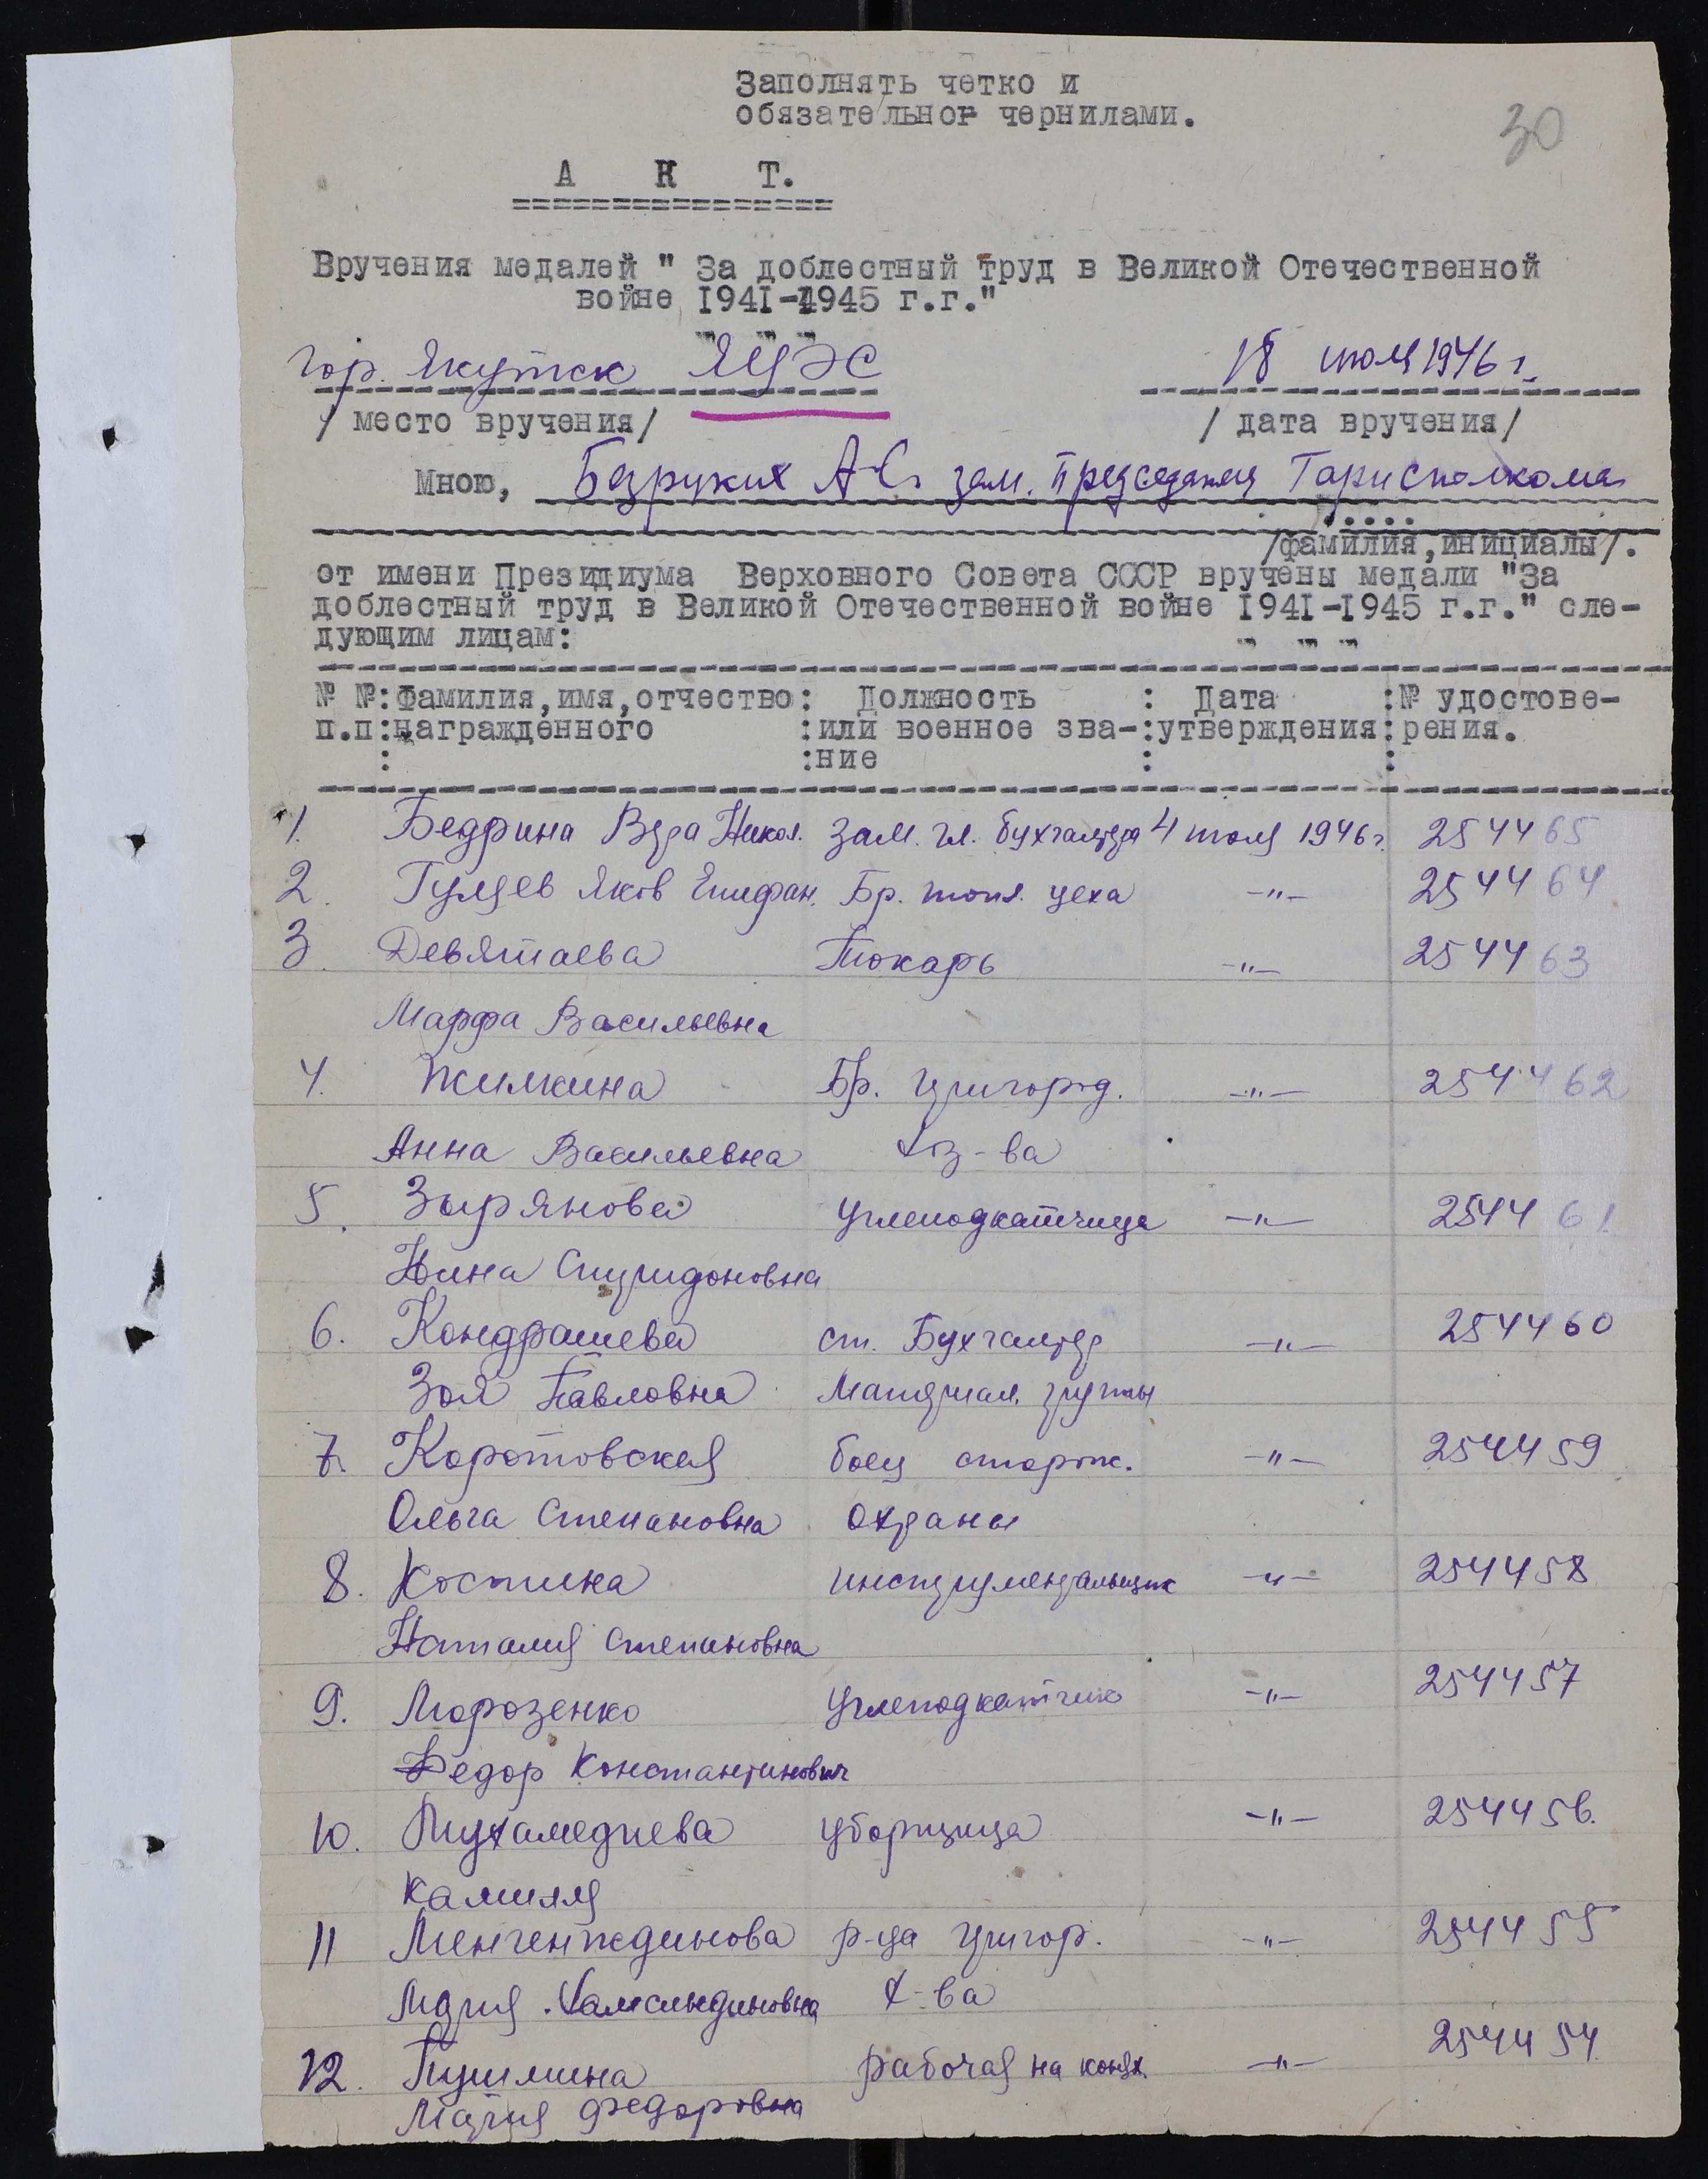 Заполнять четко и
обязательног чернилами.
30
А К Т.
Вручения медалей " За доблестный труд в Великой Отечественной
войне 1941-1945 г.г."
гор. Якутск ЯЦЭС 18 июля 1946 г.
/ место вручения/ / дата вручения/
Мною, Безруких А.С. зам. председателя Горисполкома
/фамилия,инициалы/.
от имени Президиума Верховного Совета СССР вручены медали "За
доблестный труд в Великой Отечественной войне 1941-1945 г.г." сле-
дующим лицам:
№ №:Фамилия,имя,отчество: Должность : Дата :№ удостове-
п.п:награжденного :или военное зва-:утверждения:рения.
: :ние : :
1. Бедрина Вера Никол. Зам. гл. бухгалтера 4 июля 1946 г. 254465
2. Гуляев Яков Епифан. Бр. топл. цеха -"- 254464
3. Девятаева Токарь -"- 254463
Марфа Васильевна
4. Жилкина Бр. пригород. -"- 254462
Анна Васильевна хоз-ва
5. Зырянова углеподкатчица -"- 254461
Нина Спиридоновна
6. Кондрашева ст. Бухгалтер -"- 254460
Зоя Павловна Материал. группы
7. Коротовская боец сторож. -"- 254459
Ольга Степановна охраны
8. Костина инструментальщик -"- 254458
Наталия Степановна
9. Морозенко Углеподкатчик -"- 254457
Федор Константинович
10. Мухамедиева уборщица -"- 254456.
Камиля
11 Менгенждинова р-ца пригор. -"- 254455
Мария х-ва
12. Пушмина рабочая на конях. -"- 254454.
Мария Федоровна